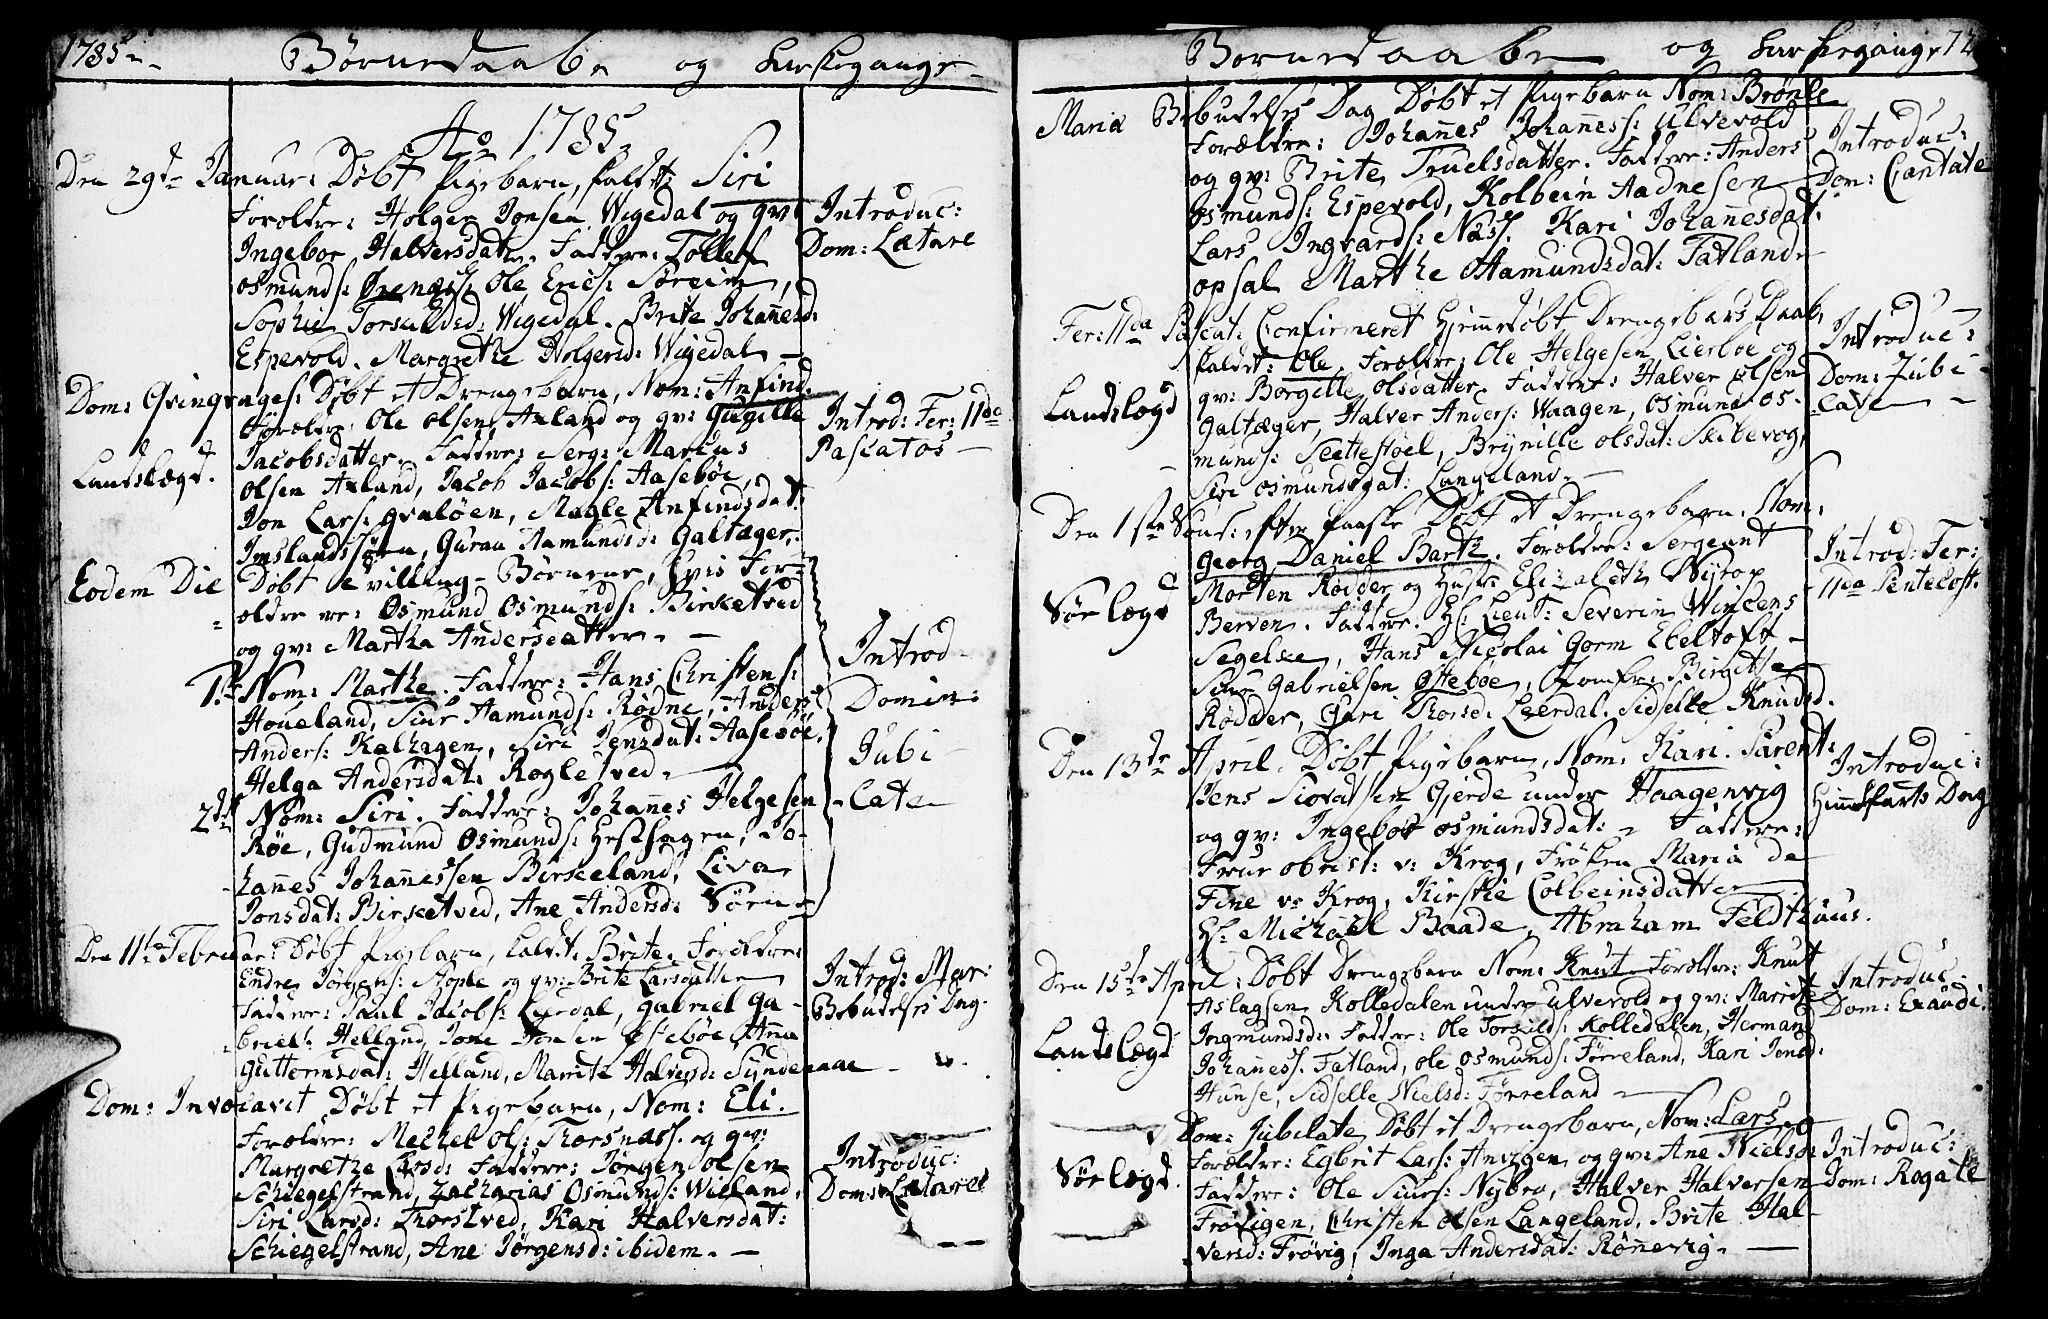 1785
Børnedaabe og Kirkegange
Ao 1785
Den 29de Januar: Døbt Pigebarn, kaldt: Siri
Foroldre: Holger Jonsen Wigedal og qv:
Ingebor Halversdatter. Faddere: Tollef
Osmunds: Ole Erics: Søreim,
Sophie Torkildsd: Wigedal. Brite Johañesd:
Espevold. Margrethe Holgersd: Wigedal
Introduc:
Dom: Lætare
Dom: Qvinqvages: Døbt et Drengebarn, Nom: Anfind.
Foroldre: Ole Olsen Axland og qv: Gugille
Jacobsdatter. Faddere: Serg: Marcus
Olsen Axland, Jacob Jacobs: Aasebøe,
Jon Lars: Qvaløen, Magle Anfindsdat:
Imslandssøen, Guran Aamundsd: Galtæger,
Landslægd.
Introd: Fer: 11da
Pascatos
Eodem Die Døbt Tvilling-Børnene, hvis For-
ældre ere: Osmund Osmunds: Birketved
og qv: Martha Andersdatter.
1. Nom: Marthe. Faddere: Hans Christens:
Houeland, Siur Aamunds: Rødne, Anders
Anders: Kalhagen, Siri Jensdat: Aasebøe,
Helga Andersdat: Rogletved.
2de Nom: Siri. Faddere: Johañes Helgesen
Røe, Gudmund Osmunds: Hesthagen, Jo-
hañes Johañessen Birkeland, Liva
Jonsdat: Birketved, Ane Andersd: Sørn
Introd
Domin:
Jubi
late
Den 11te Februar: Døbt Pigebarn, kaldt: Brite. Foroldre:
Endre Jørgens: Hople og qv: Brite Larsdatter
Faddere: Paul Jacobs: Leerdal, Gabriel Ga-
briels: Helland, Jone Jonsen Østebøe, Anna
Guttormsdat: Helland, Marrite Halversd: Sundenaae
Introd: Mar:
Bebudelses Dag.
Dom: Invocavit Døbt et Pigebarn, Nom: Eli.
Foroldre: Mechel Ols: Thorsnæss. og qv:
Margrethe Larsd: Faddere: Jørgen Olsen
Schiegelstrand, Zacharias Osmunds: Wieland,
Siri Larsd: Thorstved, Kari Halversdat:
Schiegelstrand, Ane Jørgensd: ibidem.
Introduc:
Dom: Lætare
Børnedaabe og Kirkegange 72
Mariæ Bebudelses Dag Døbt et Pigebarn Nom: Brønle
Foroldre: Johañes Johañess: Ulvevold
og qv: Brite Truelsdatter. Faddere: Anders
Osmunds: Espevold, Kolbein Aadnesen
Lars Ingvards: Næss. Kari Johañesdat:
Opsal Marthe Aamundsdat: Fatland
Introduc:
Dom: Cantate
Fer: 11da Pascat: Confirmeret Hjemmedøbt Drengebarns Daab,
kaldet: Ole. Foroldre: Ole Helgesen Lierbøe og
qv: Borgille Olsdatter. Faddere: Halver Olsen
Galtæger, Halver Anders: Waagen, Osmund Os-
munds: Seettestøel, Brynille Olsdat: Skibevog,
Siri Osmundsdat: Langeland.
Landslægd
Introduc:
Dom: Jubi-
late
Den 1ste Sønd: efter Paaske Døbt et Drengebarn. Nom:
Georg Daniel Barth. Foroldre: Sergeant
Morten Rødder og Hustr: Elizabeth Nyrop
Berven. Faddere. Hr: Lieut: Severin Wincens
Segelke, Hans Nicolai Gorm Ebeltoft
Siur Gabrielsen Østebøe, Jomfr: Birgitte
Rødder, Guri Thorsd: Leerdal. Sidselle Knudsd.
Sørlægd
Introd: Fer:
11da Pentecost.
Den 13de April. Døbt Pigebarn, Nom: Kari. Parent:
Jens Siovatsen Gjerde under Haagenvig
og qv: Ingebor Osmundsdat: Faddere:
Frue Obrist: v: Krog, Frøken Maria de
Fine v: Krog, Kirstie Colbeinsdatter
Hr: Michael Baade, Abraham Feldthuus.
Introduc:
Himmelfarts Dag
Den 15de April: Døbt Drengebarn Nom: Knut Foroldre: Knut
Aslagsen Kolledalen under Ulvevold og qv: Marite
Ingmundsd: Faddere: Ole Torkilds: Kolledalen, Herman
Johañess. Fatland, Ole Osmunds: Førreland, Kari Jonsd:
Hunse, Sidselle Nielsd: Førreland
Landslægd
Introduc:
Dom: Exaudi.
Dom: Jubilate Døbt et Drengebarn, Nom: Lars.
Foroldre: Egbrit Lars: Anvigen og qv: Ane Nielsd:
Faddere: Ole Siurs: Nybro, Halver Halversen
Frøvigen, Christen Olsen Langeland, Brite Hal-
versd: Frøvig, Inga Andersdat: Røñevig.
Sørlægd.
Introduc:
Dom: Rogate